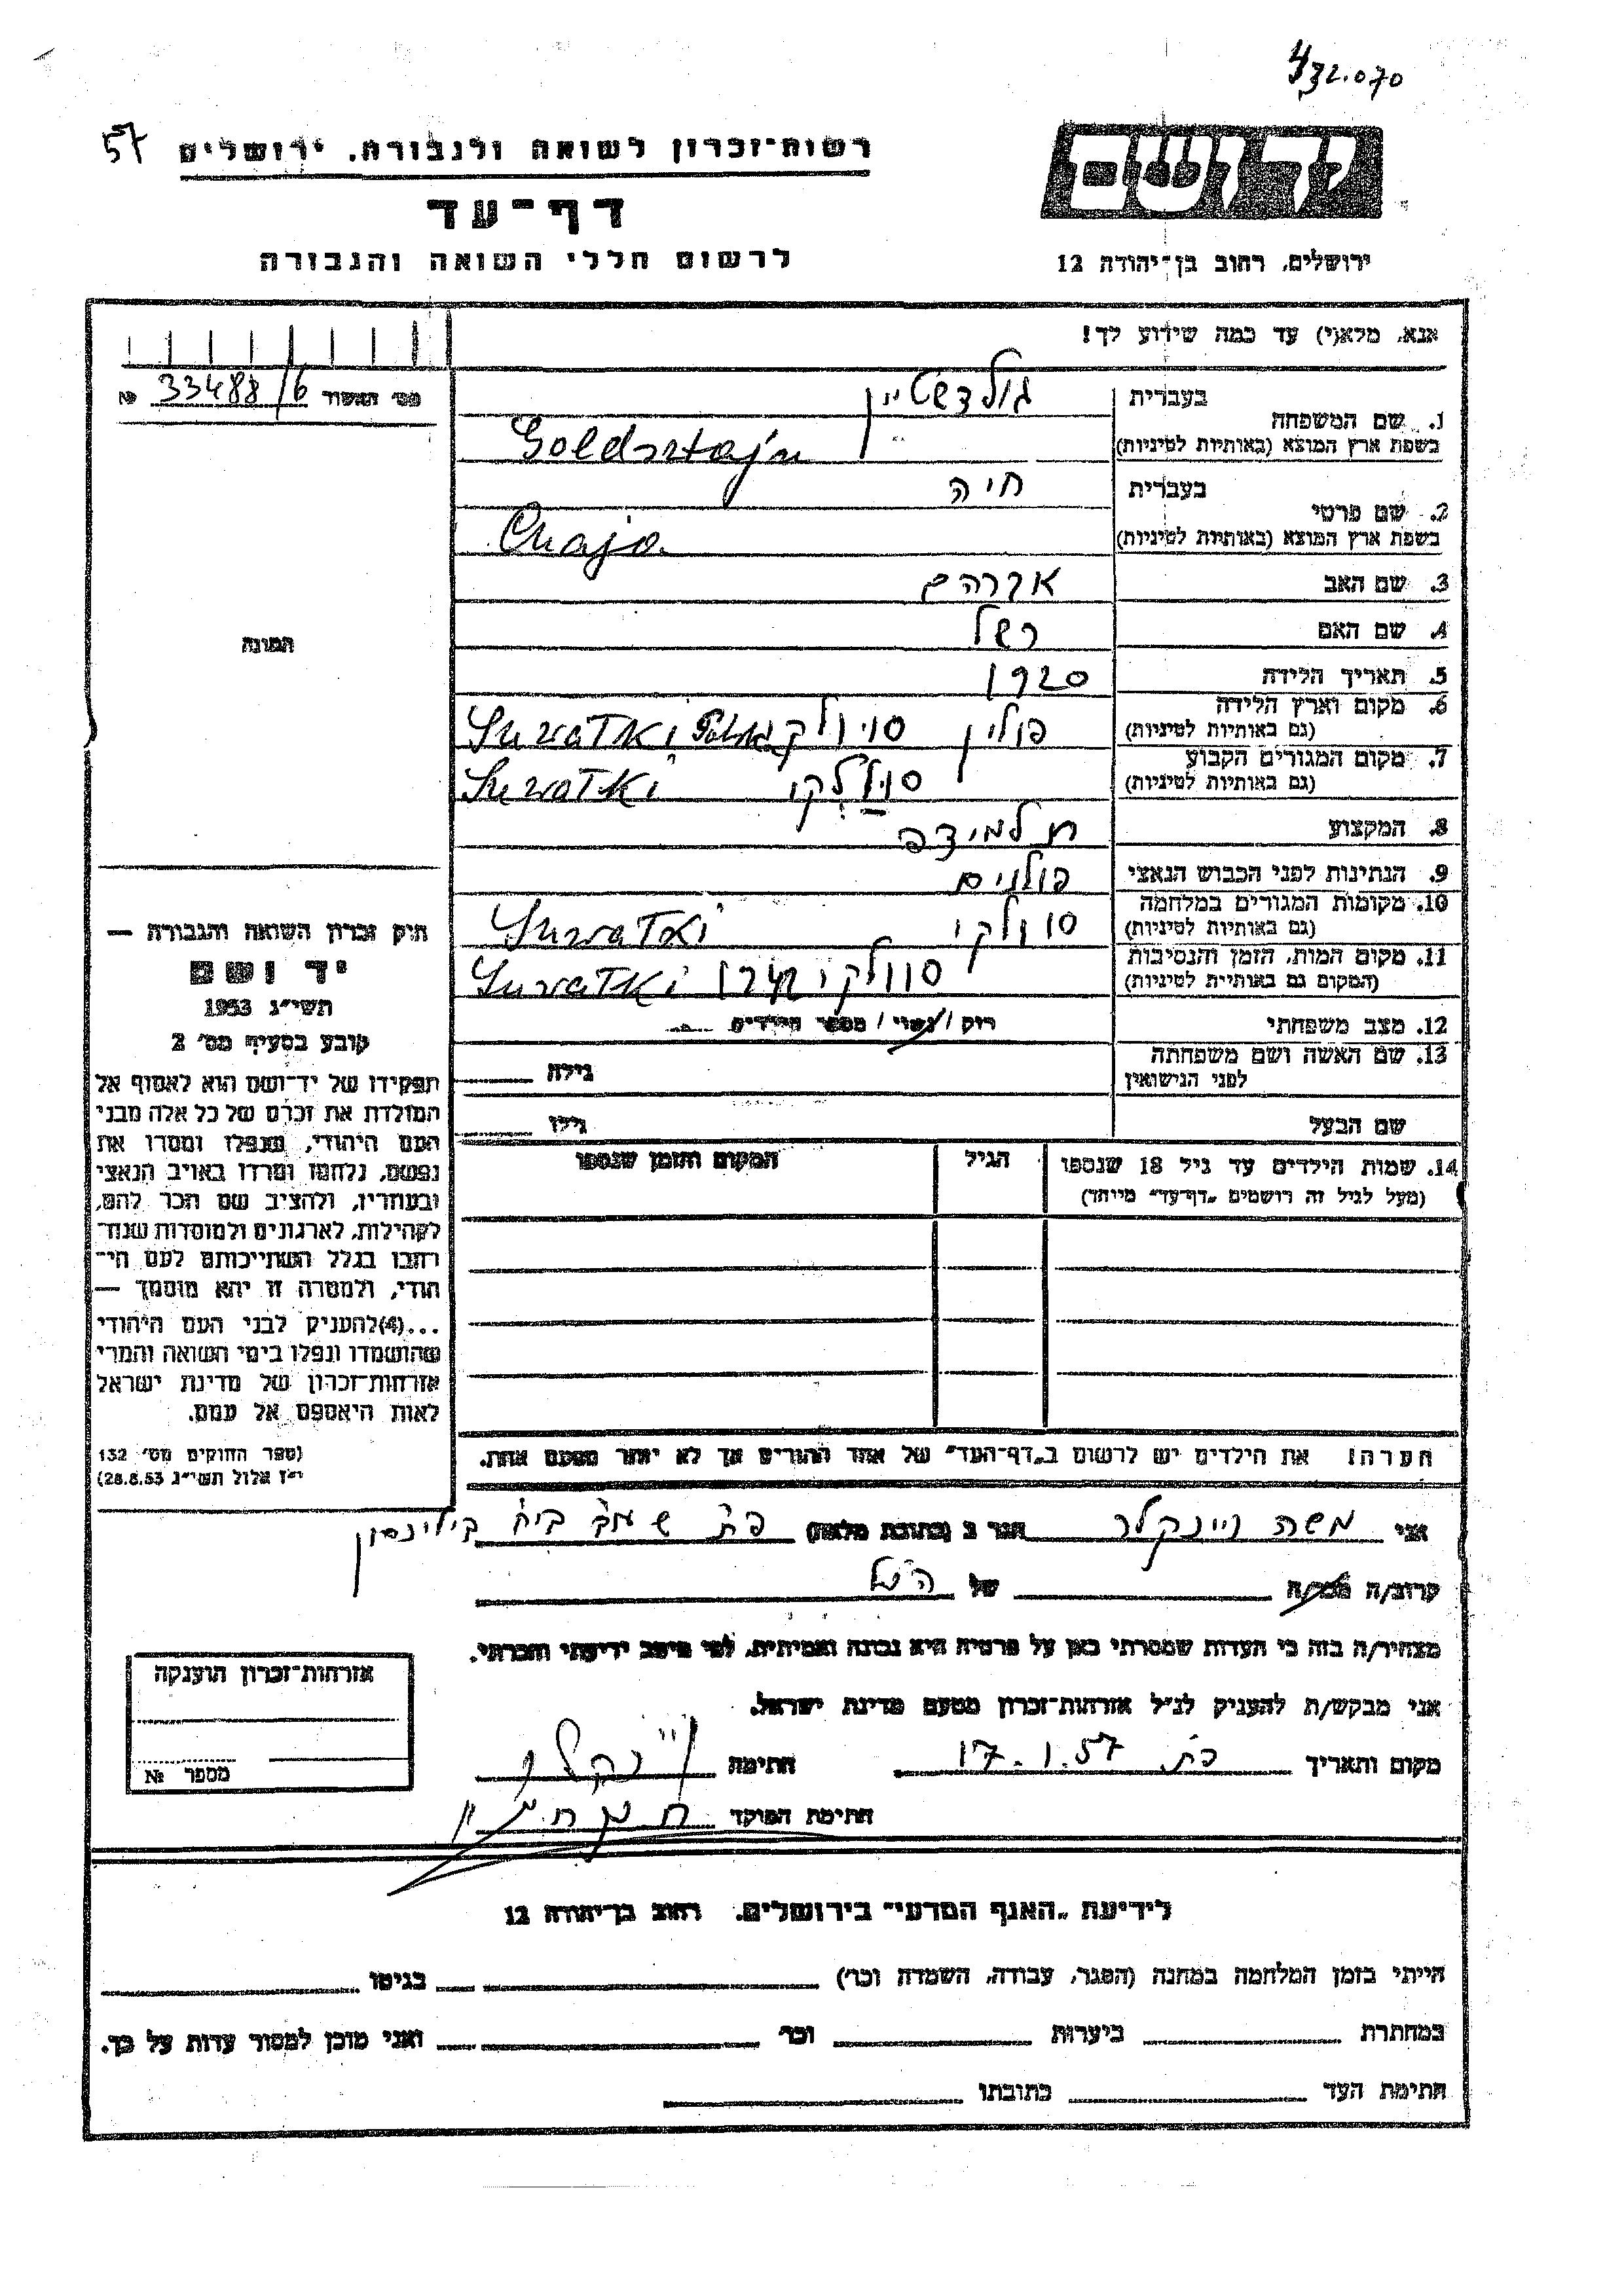 432.070
57
רשות־זכרון לשואה ולגבורה, ירושלים
דף־עד
לרשום חללי השואה והגבורה
ידושם
ירושלים, רחוב בן־יהודה 12
אנא, מלא(י) עד כמה שידוע לך!
מס' האשור 33488/6 №
1. שם המשפחה
בעברית גולדשטיין
בשפת ארץ המוצא (באותיות לטיניות) Goldsztajn
2. שם פרטי
בעברית חיה
בשפת ארץ המוצא (באותיות לטיניות) Chaja
3. שם האב אברהם
4. שם האם רשל
5. תאריך הלידה 1920
6. מקום וארץ הלידה
(גם באותיות לטיניות) פולין סוולקי Suwałki Polska
7. מקום המגורים הקבוע
(גם באותיות לטיניות) סוולקי Suwałki
8. המקצוע תלמידה
9. הנתינות לפני הכבוש הנאצי פולנים
10. מקומות המגורים במלחמה
(גם באותיות לטיניות) סוולקי Suwałki
11. מקום המות, הזמן והנסיבות
(המקום גם באותיית לטיניות) סוולקי Suwałki
12. מצב משפחתי רוק / נשוי / מספר הילדים
13. שם האשה ושם משפחתה
לפני הנישואין
גילה
שם הבעל
גילו
14. שמות הילדים עד גיל 18 שנספו
(מעל לגיל זה רושמים „דף־עד" מייחד)
הגיל
המקום והזמן שנספו
הערה! את הילדים יש לרשום ב„דף־העד" של אחד ההורים אך לא יותר מפעם אחת.
התמונה
חוק זכרון השואה והגבורה —
יד ושם
תשי"ג 1953
קובע בסעיף מס' 2
תפקידו של יד־ושם הוא לאסוף אל
המולדת את זכרם של כל אלה מבני
העם היהודי, שנפלו ומסרו את
נפשם, נלחמו ומרדו באויב הנאצי
ובעוזריו, ולהציב שם וזכר להם,
לקהילות, לארגונים ולמוסדות שנח־
רבו בגלל השתייכותם לעם הי־
הודי, ולמטרה זו יהא מוסמך —
...(4)להעניק לבני העם היהודי
שהושמדו ונפלו בימי השואה והמרי
אזרחות־זכרון של מדינת ישראל
לאות היאספם אל עמם.
(ספר החוקים מס' 132
י"ז אלול תשי"ג 28.8.53)
אני משה ויינקלר הגר ב (כתובת מלאה) פ״ת בילינסון
קרוב/ה מכר/ה של הנ״ל
מצהיר/ה בזה כי העדות שמסרתי כאן על פרטיה היא נכונה ואמיתית, לפי מיטב ידיעתי והכרתי.
אני מבקש/ת להעניק לנ"ל אזרחות־זכרון מטעם מדינת ישראל.
מקום ותאריך פ״ת 17.1.57 חתימה ויינקלר
חתימת הפוקד
אזרחות־זכרון הוענקה
מספר №
לידיעת „האגף המדעי" בירושלים, רחוב בן־יהודה 12
הייתי בזמן המלחמה במחנה (הסגר, עבודה, השמדה וכו') בגיטו
במחתרת ביערות וכו' ואני מוכן למסור עדות על כך.
חתימת העד כתובתו